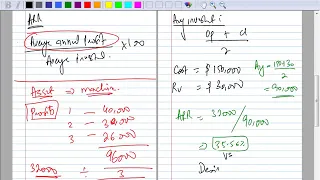 ARR
Average annual profit
x 100
Average investmt.
Asset → machine.
Profit 1 — 40,000
2 — 30,000
3 — 26000
96000
32000 ÷ 3
Avg investmt :
Op + cl
2
Cost = $ 150,000
Avg = 150+30
2
RV = $ 30,000
= 90,000
ARR = 32000 / 90,000
⇒ 35.56%
vs